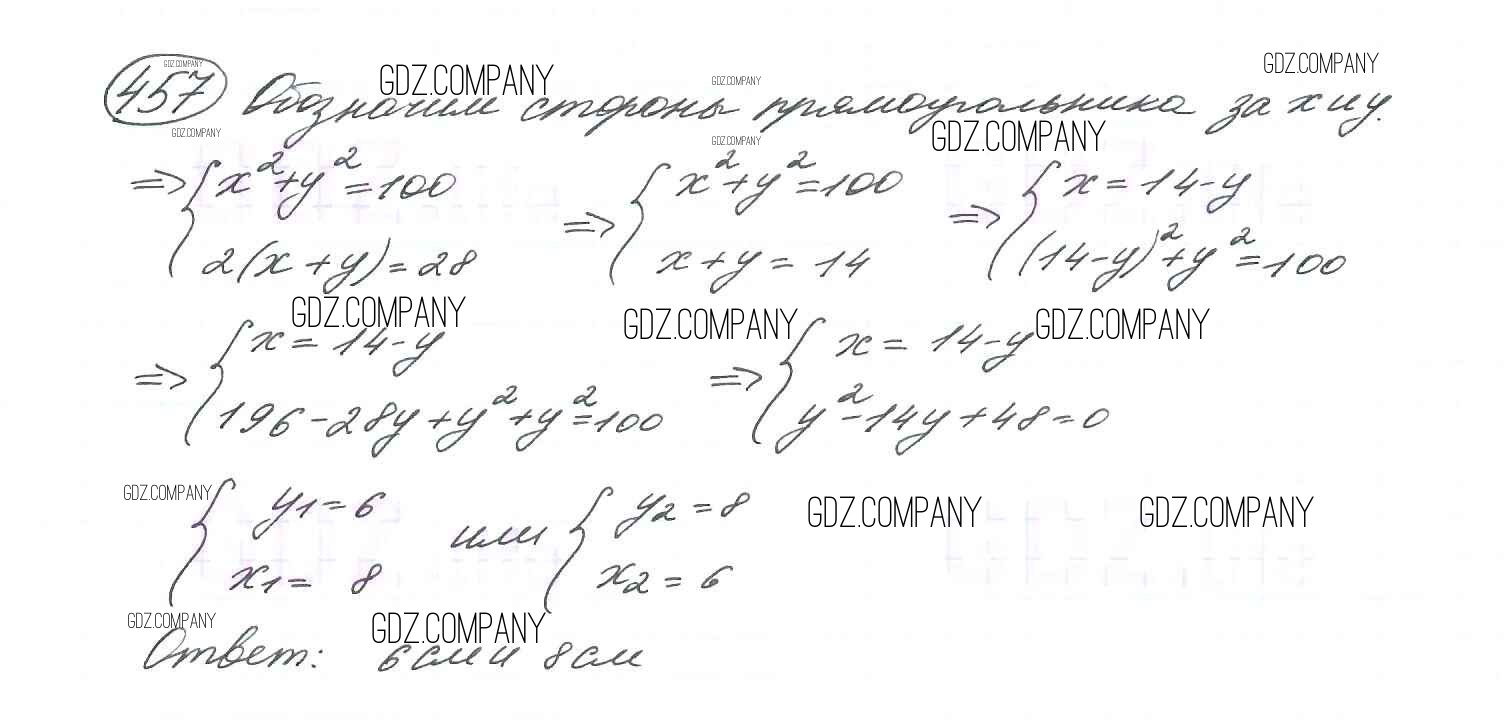 GDZ.COMPANY GDZ.COMPANY GDZ.COMPANY GDZ.COMPANY
457 Обозначим стороны прямоугольника за x и y.
GDZ.COMPANY GDZ.COMPANY GDZ.COMPANY
=> { x² + y² = 100 => { x² + y² = 100 => { x = 14 - y
2(x + y) = 28 x + y = 14 (14 - y)² + y² = 100
GDZ.COMPANY GDZ.COMPANY GDZ.COMPANY
=> { x = 14 - y => { x = 14 - y
196 - 28y + y² + y² = 100 y² - 14y + 48 = 0
GDZ.COMPANY GDZ.COMPANY GDZ.COMPANY
{ y1 = 6 или { y2 = 8
x1 = 8 x2 = 6
GDZ.COMPANY GDZ.COMPANY
Ответ: 6 см и 8 см